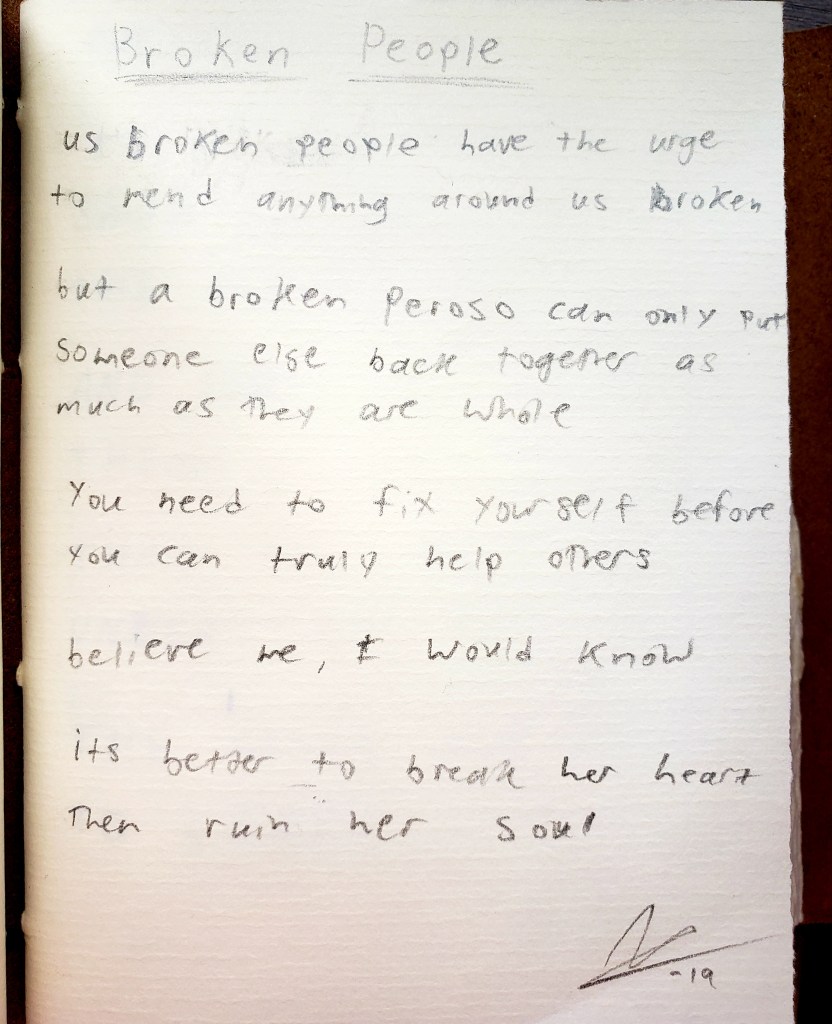 Broken People
us broken people have the urge
to mend anything around us broken
but a broken peroso can only put
someone else back together as
much as they are whole
You need to fix yourself before
you can truly help others
believe me, I would know
its better to break her heart
Then ruin her soul
-19